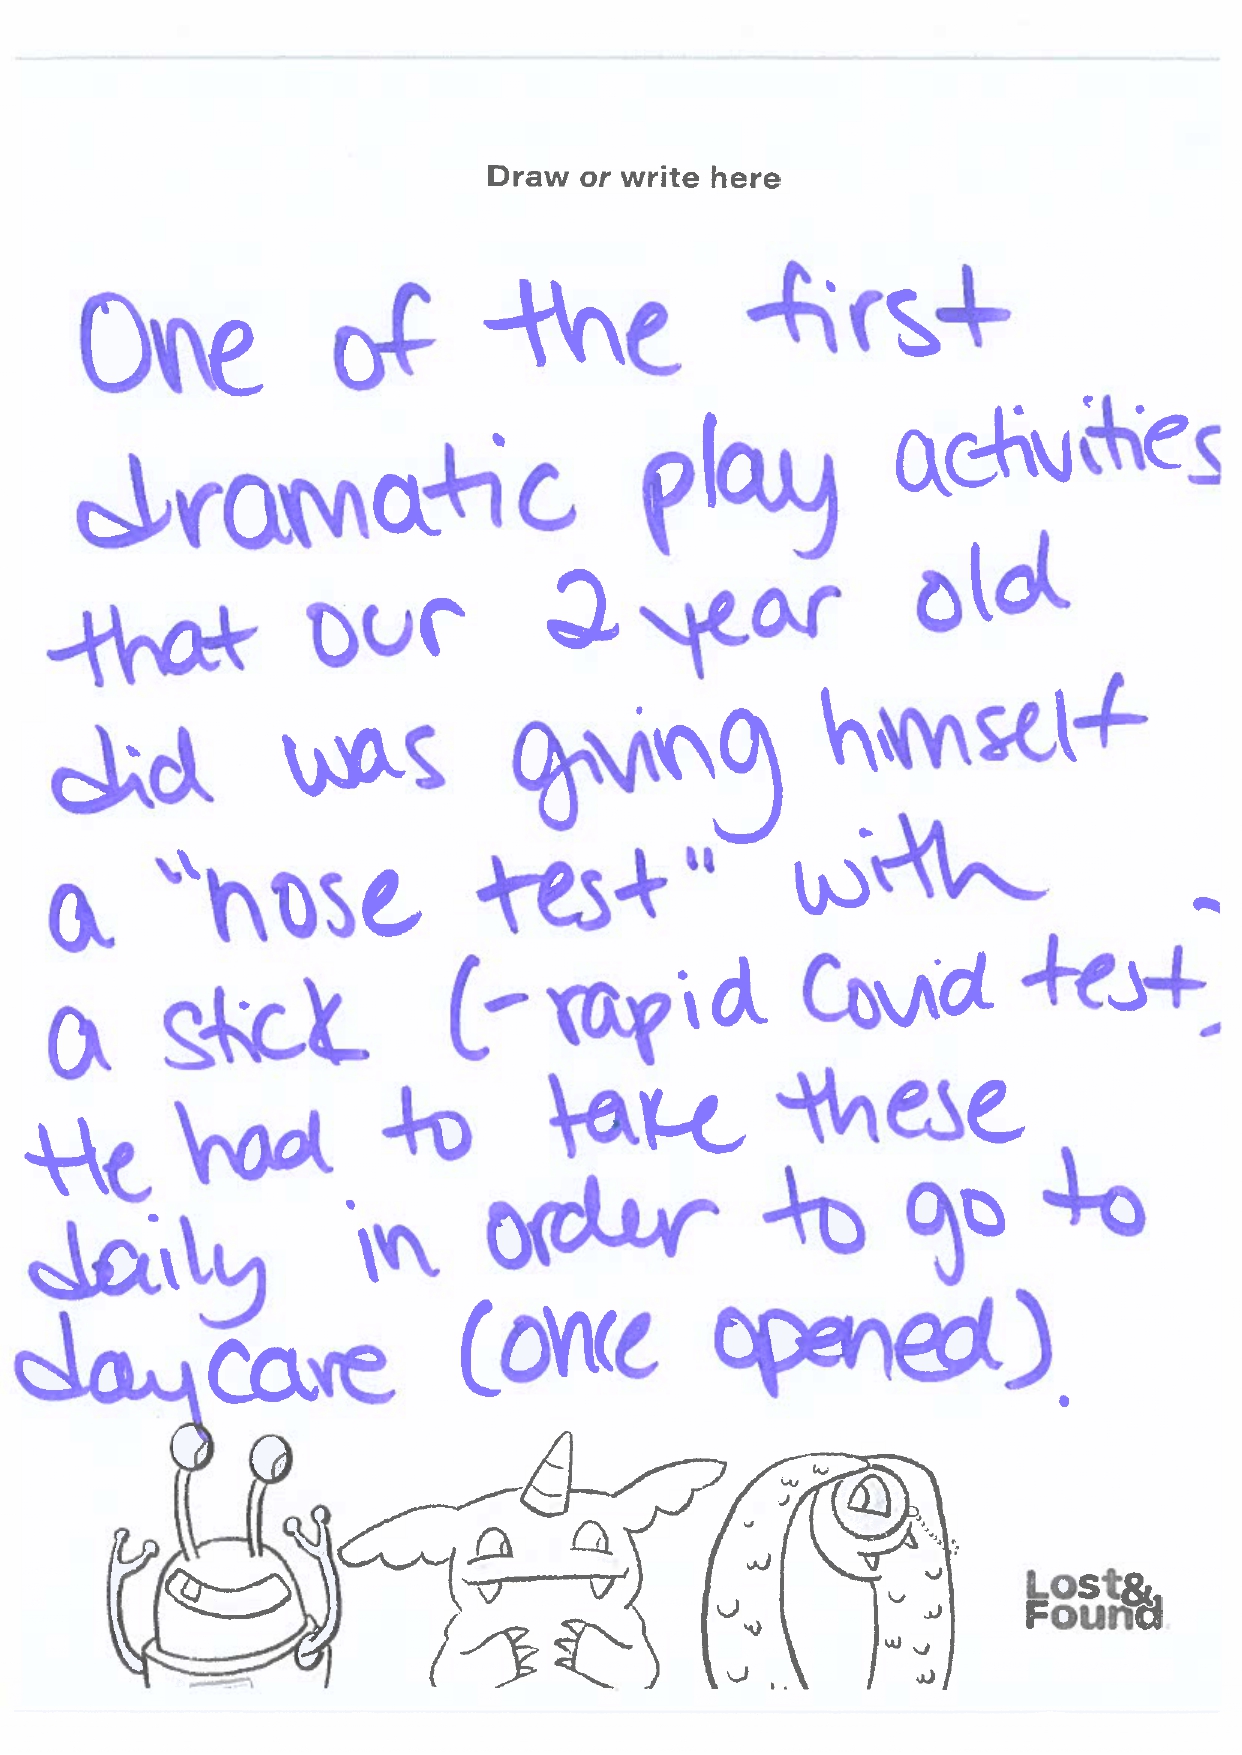 Draw or write here
One of the first
dramatic play activities
that our 2 year old
did was giving himself
a "nose test" with
a stick (- rapid Covid test)
He had to take these
daily in order to go to
daycare (once opened).
Lost&
Found